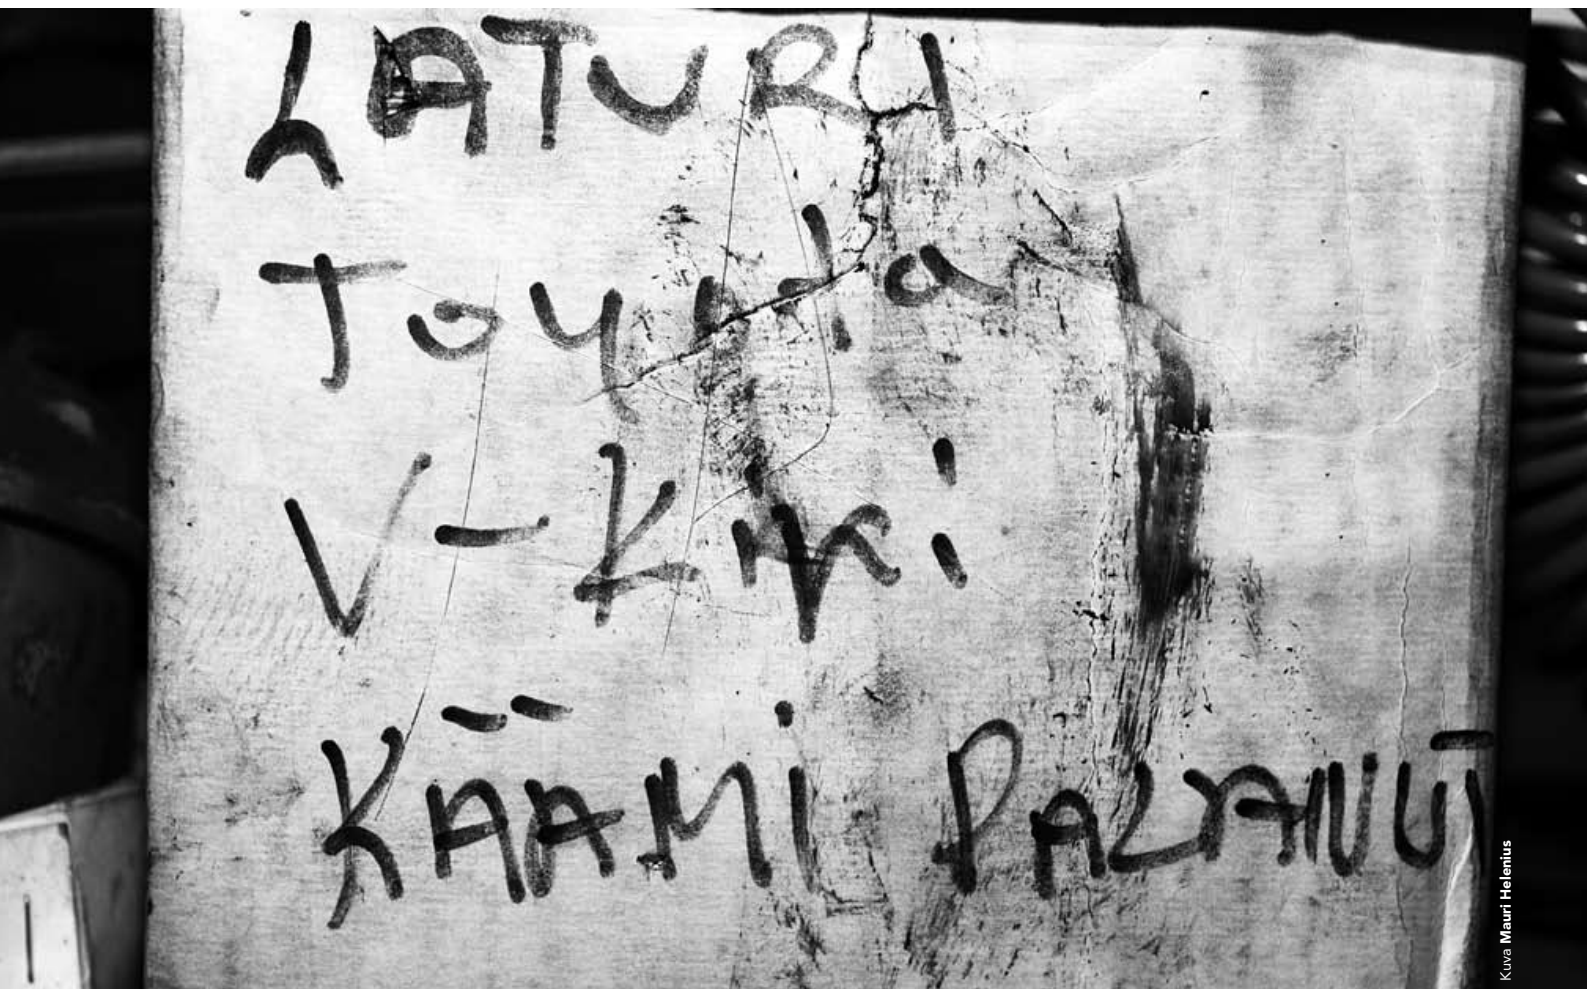 LATURI
Toyota
KÄÄMI PALANUT
Kuva Mauri Helenius